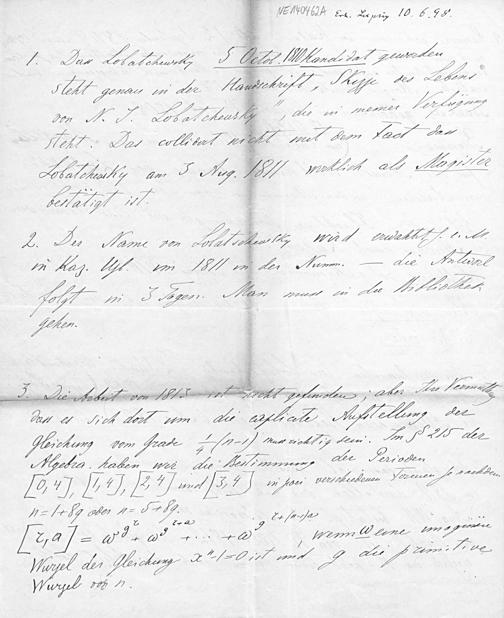 NE140462A Erh. Leipzig 10.6.98.
1. Das Lobatchewsky 5 Octob. 1810 Kandidat geworden
steht genau in der Handschrift „Skizze des Lebens
von N. I. Lobatchewsky", die in meiner Verfügung
steht. Das collidert nicht mit dem Fact das
Lobatchewsky am 3 Aug. 1811 wirklich als Magister
bestätigt ist.
2. Der Name von Lobatschewsky wird erwähnt z. e. M.
in Kaz. Izl. im 1811 in der Numm. — die Antwort
folgt in 3 Tagen. Man muss in die Bibliothek
gehen.
3. Die Arbeit von 1813 ist nicht gefunden; aber Ihr Vermuthg
dass es sich dort um die explicite Aufstellung der
Gleichung vom Grade 1/4 (n-1) muss richtig sein. Im § 215 der
Algebra haben wir die Bestimmung der Perioden
[0,4], [1,4], [2,4] und [3,4] in zwei verschiedenen Formen je nachdem
n=1+8g oder n=5+8g.
[r,a] = ω^{g^r} + ω^{g^{r+a}} + ... + ω^{g^{r+(n-1)a}}, wenn ω eine imaginäre
Wurzel der Gleichung x^n-1=0 ist und g die primitive
Wurzel von n.